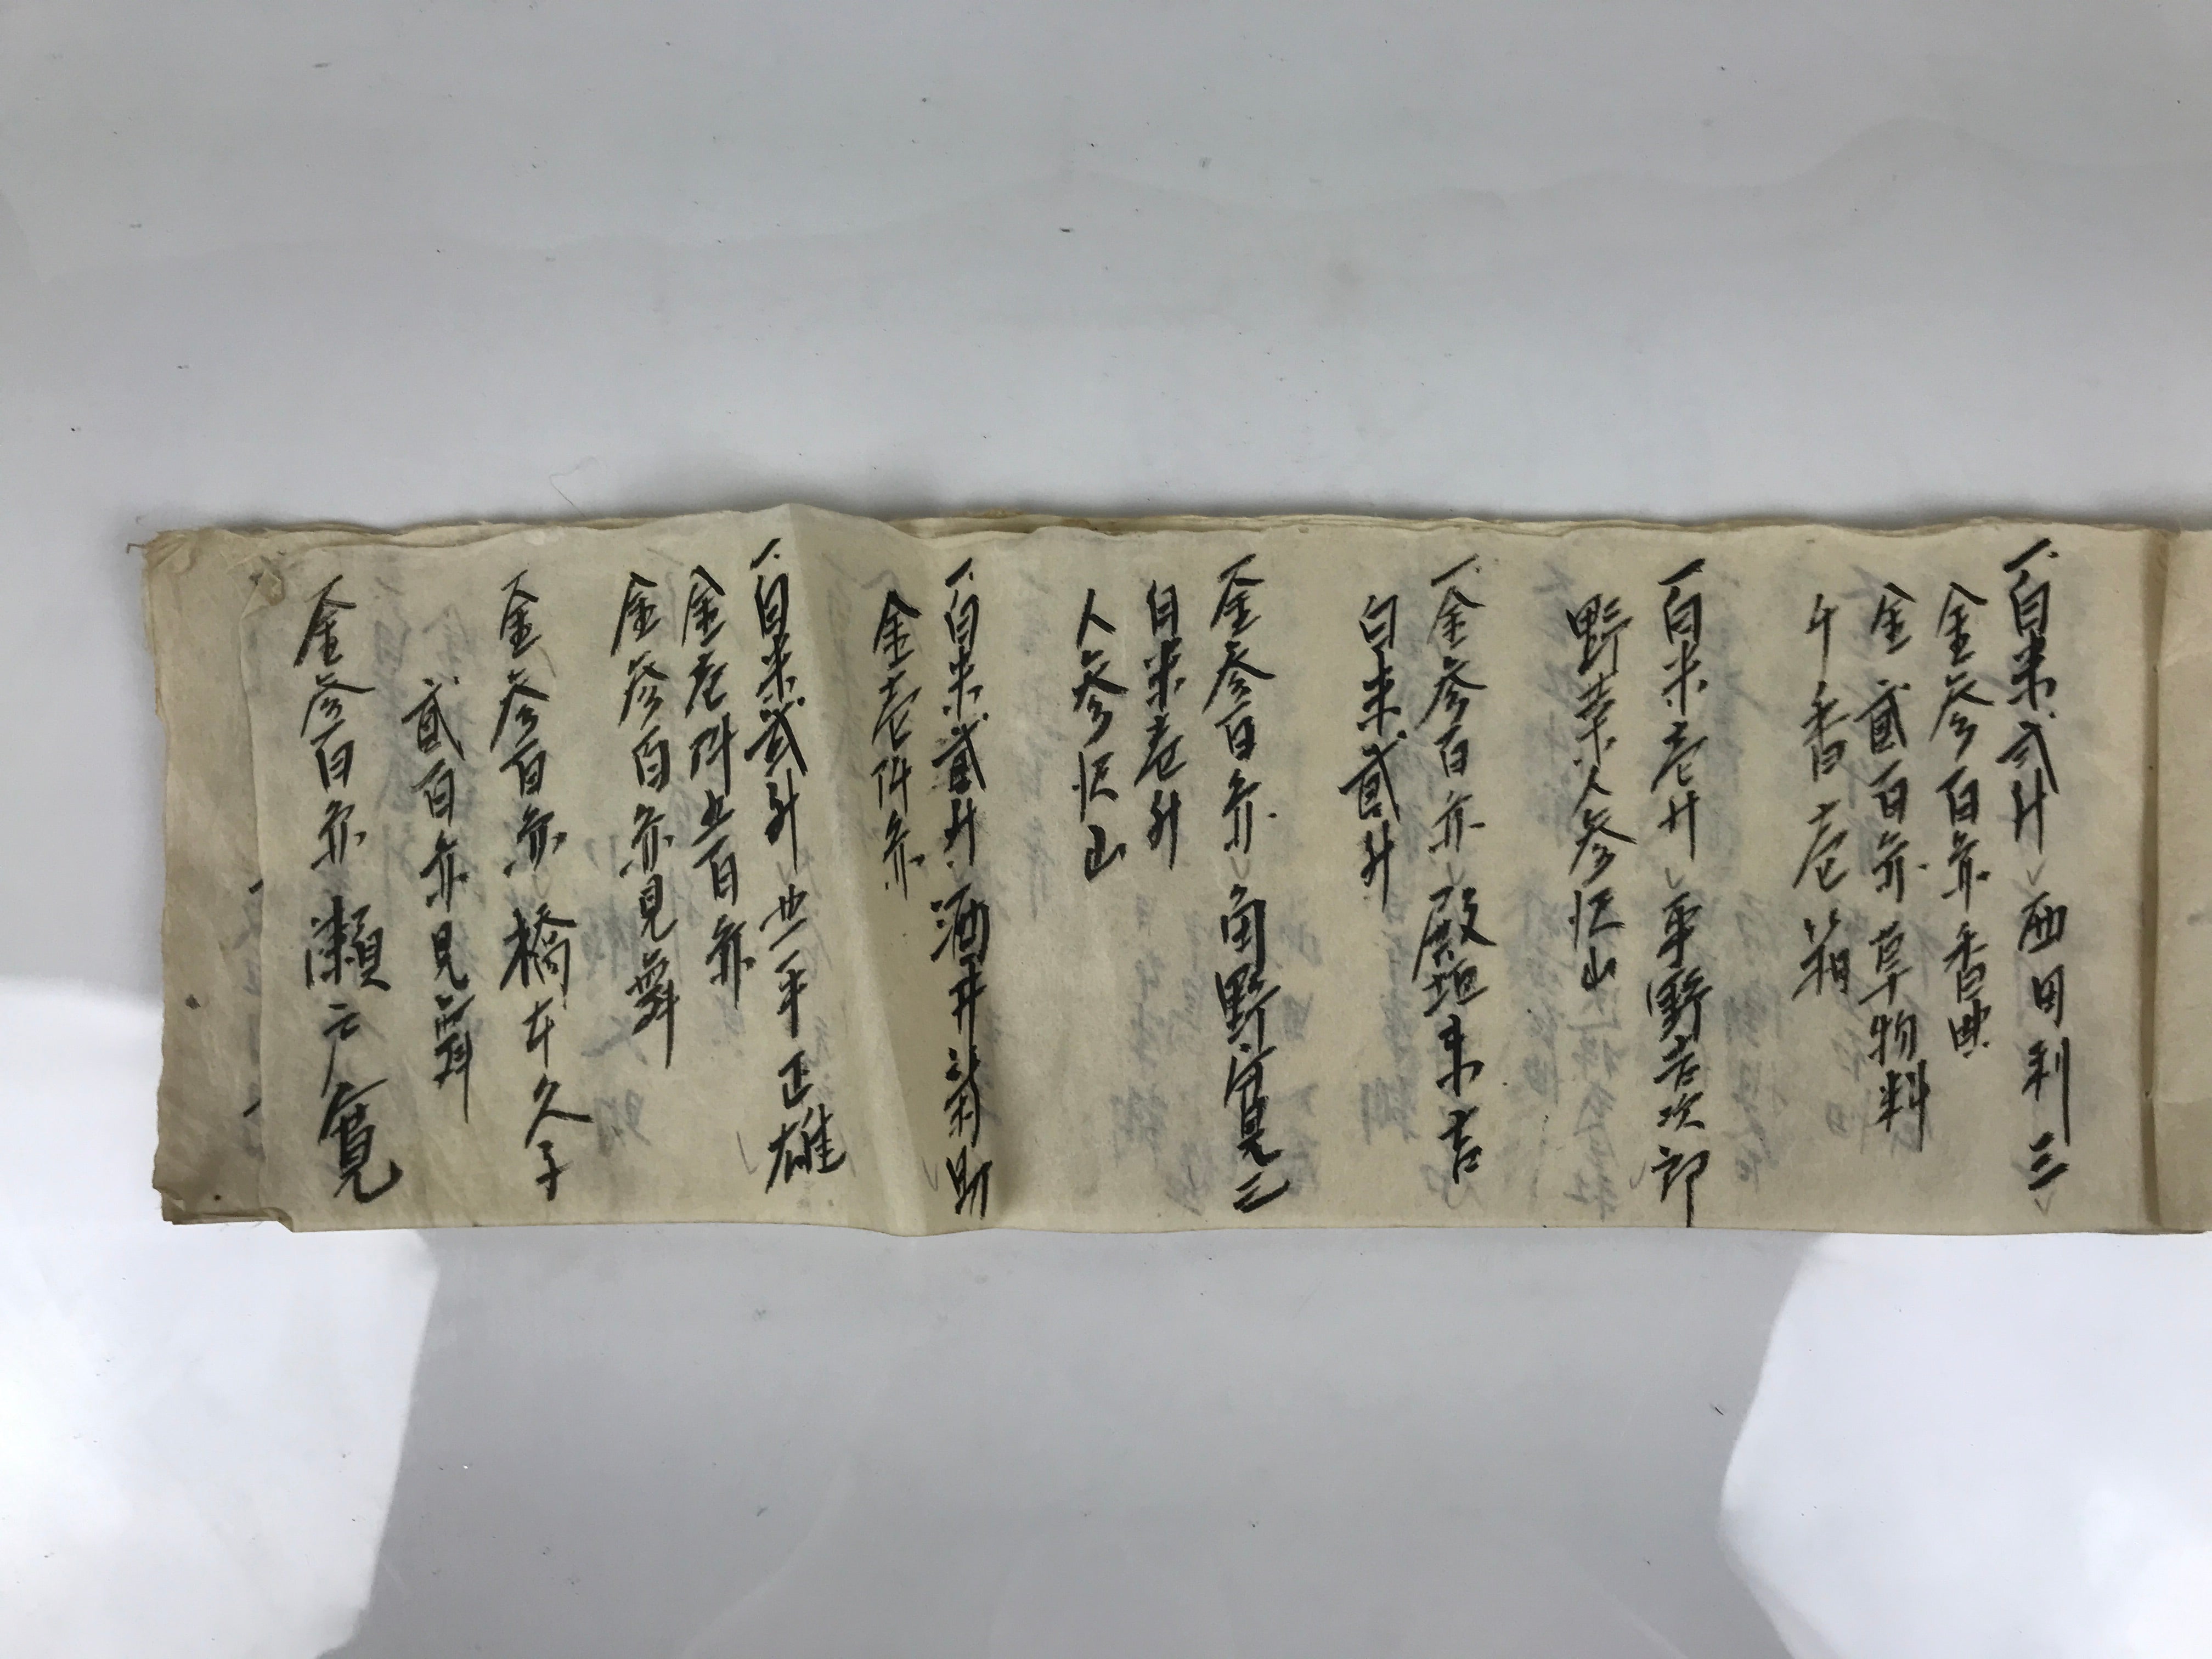 一、白米弐升 西田利三
金参百ホ 香典
金貳百ホ 草物料
午香壱箱
一、白米壱升 平野吉次郎
野菜人参沢山
一、金参百ホ 殿垣末吉
白米貳升
一、金参百ホ 角野寅三
白米壱升
人参沢山
一、白米貳升 酒井菊助
金壱阡ホ
一、白米貳升 世平正雄
金壱阡五百ホ
金参百ホ見舞
一、金参百ホ 橋本久子
貳百ホ見舞
一、金参百ホ 瀬戸寛